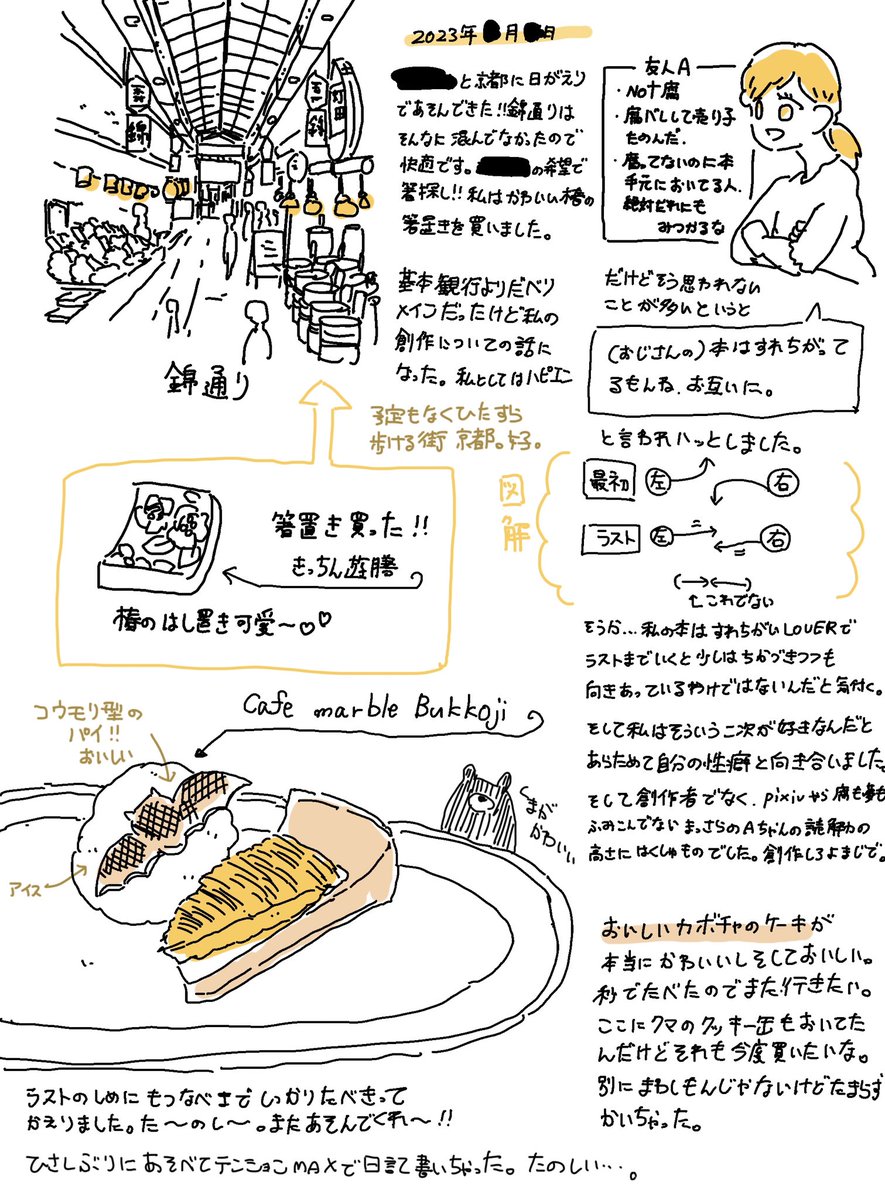 2023年 月 日
と京都に日がえり
であそんできた!!錦通りは
そんなに混んでなかったので
快適です。 の希望で
箸探し!!私はかわいい椿の
箸置きを買いました。
基本観行よりだべり
メインだったけど私の
創作についての話に
なった。私としてはハピエン
友人A
・NOT腐
・腐バレして売り子
たのんだ.
・腐ってないのに本
手元においてる人.
絶対だれにも
みつかるな
だけどそう思われない
ことが多いというと
(おじさんの)本はすれちがって
るもんね、お互いに。
と言われハッとしました。
錦通り
予定もなくひたすら
歩ける街 京都。好。
箸置き買った!!
きっちん遊膳
椿のはし置き可愛〜♡♡
図解
最初 左 右
ラスト 左 右
これでない
そうか…私の本はすれちがいLOVERで
ラストまでいくと少しはちかづきつつも
向きあっているわけではないんだと気付く。
そして私はそういう二次が好きなんだと
あらためて自分の性癖と向き合いました。
そして創作者でなく、pixivやら腐も夢も
ふみこんでないまっさらのAちゃんの読解力の
高さにはくしゅものでした。創作しろよまじで。
Cafe marble Bukkoji
コウモリ型の
パイ!!
おいしい
アイス
かわいい
おいしいカボチャのケーキが
本当にかわいいしそしておいしい。
秒でたべたのでまた行きたい。
ここにクマのクッキー缶もおいてた
んだけどそれも今度買いたいな。
別にまわしもんじゃないけどたまらず
かいちゃった。
ラストのしめにもつなべまでしっかりたべきって
かえりました。た〜のし〜。またあそんでくれ〜!!
ひさしぶりにあそべてテンションMAXで日記書いちゃった。たのしい…。